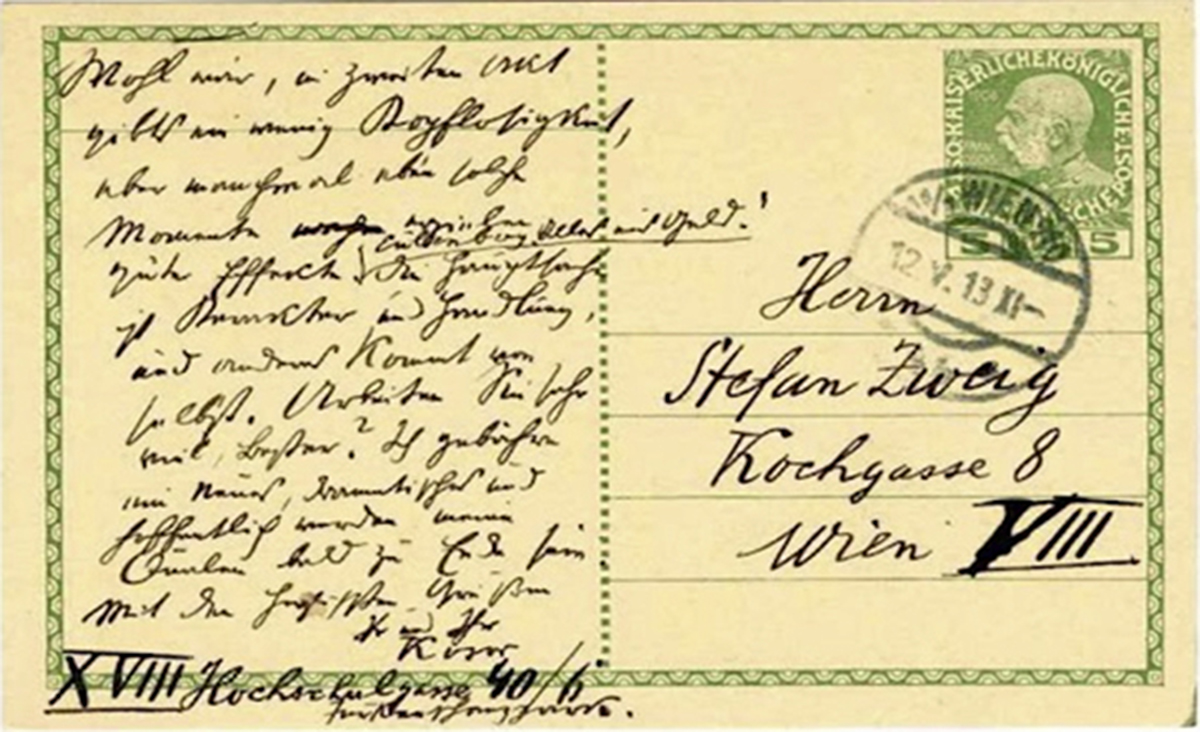 Wohl wir, im zweiten Akt
gibts ein wenig Kopflosigkeit,
aber manchmal üben solche
Momente
alles mit Geld.!
gute Effekte die Hauptsache
ist Karakter und Handlung,
und anderes kommt von
selbst. Arbeiten Sie sehr
viel, Bester? Ich gebähre
ein neues, dramatisches und
hoffentlich werden meine
Qualen bald zu Ende sein
Mit den herzlichsten Grüßen
Ihr
XVIII Hochschulgasse 40/6
KAISERLICHEKÖNIGLICHE
5 5
WIEN
12.V.13 XI
Herrn
Stefan Zweig
Kochgasse 8
Wien VIII